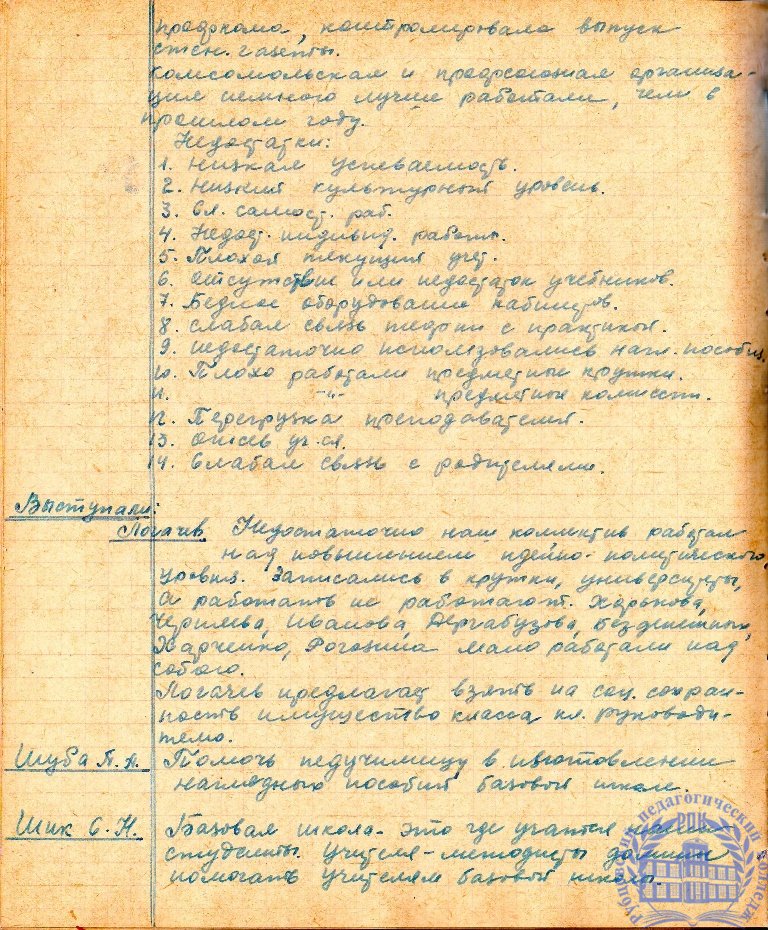 профкома, контролировала выпуск
стен. газеты.
Комсомольская и профсоюзная организа-
ция немного лучше работали, чем в
прошлом году.
Недостатки:
1. Низкая успеваемость.
2. Низкий культурный уровень.
3. вл. самост. раб.
4. Недост. индивид. работы.
5. Плохой текущий учет.
6. Отсутствие или недостаток учебников.
7. Бедное оборудование кабинетов.
8. Слабая связь теории с практикой.
9. недостаточно использовались нагл. пособия.
10. Плохо работали предметные кружки.
11. -"- предметные комиссии.
12. Перегрузка преподавателей.
13. Отсев уч-ся.
14. Слабая связь с родителями.
Выступали:
Логачев Недостаточно наш коллектив работал
над повышением идейно-политического
уровня. Записались в кружки, университеты,
а работать не работают. Харькова,
Иванова, Дергабузова, Безденежных,
Харченко, Рогозина мало работали над
собою.
Логачев предлагает взять на соц. сохран-
ность имущество класса кл. руководи-
телю.
Шуба П. П. Помочь педучилищу в изготовлении
наглядного пособия базовой школе.
Шик С. Н. Базовая школа - это где учатся наши
студенты. Учителя-методисты должны
помогать учителям базовой школы.
Рубцовский педагогический колледж
РПК